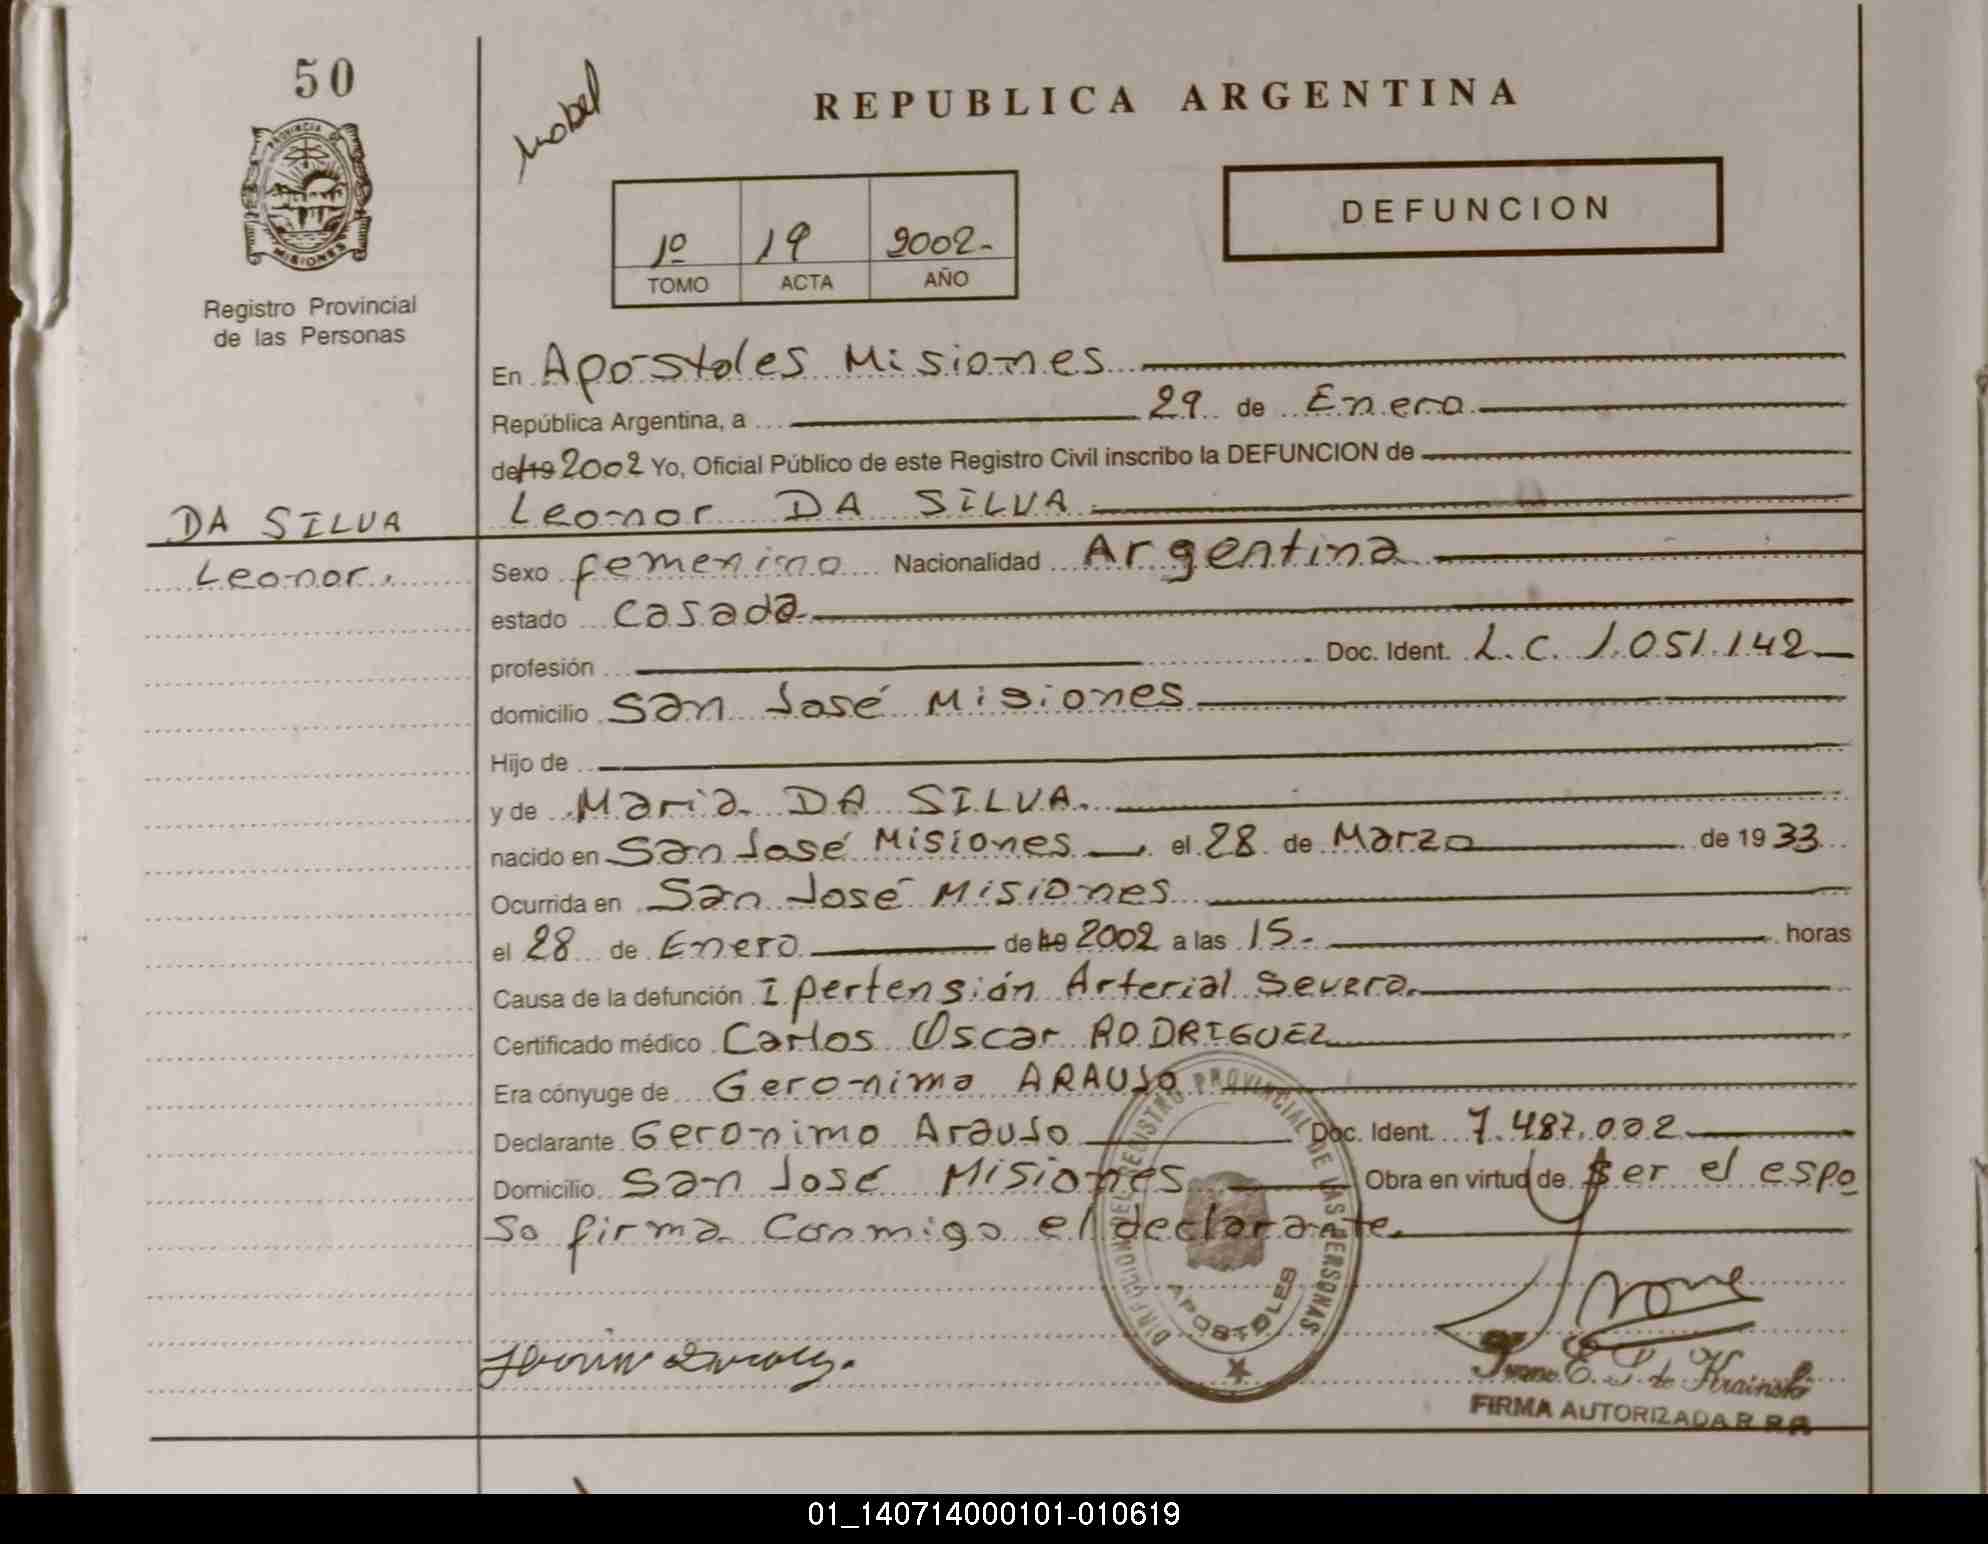 50
REPUBLICA ARGENTINA
PROVINCIA DE
MISIONES
Registro Provincial
de las Personas
DEFUNCION
1º 19 2002-
TOMO ACTA AÑO
En Apóstoles Misiones
República Argentina, a 29 de Enero
del 19 2002 Yo, Oficial Público de este Registro Civil inscribo la DEFUNCION de
Leonor DA SILVA
DA SILVA
Leonor.
Sexo femenino Nacionalidad Argentina
estado casada
profesión Doc. Ident. L.C. 1.051.142
domicilio San José Misiones
Hijo de
y de Maria DA SILVA.
nacido en San José Misiones el 28 de Marzo de 1933
Ocurrida en San José Misiones
el 28 de Enero de 19 2002 a las 15- horas
Causa de la defunción Ipertensión Arterial Severa.
Certificado médico Carlos Oscar RODRIGUEZ
Era cónyuge de Geronimo ARAUJO
Declarante Geronimo Araujo Doc. Ident. 7.487.002
Domicilio San José Misiones Obra en virtud de ser el espo
so firma conmigo el declarante.
DIRECCION DEL REGISTRO PROVINCIAL DE LAS PERSONAS
APOSTOLES
FIRMA AUTORIZADA R.P.P.
01_140714000101-010619